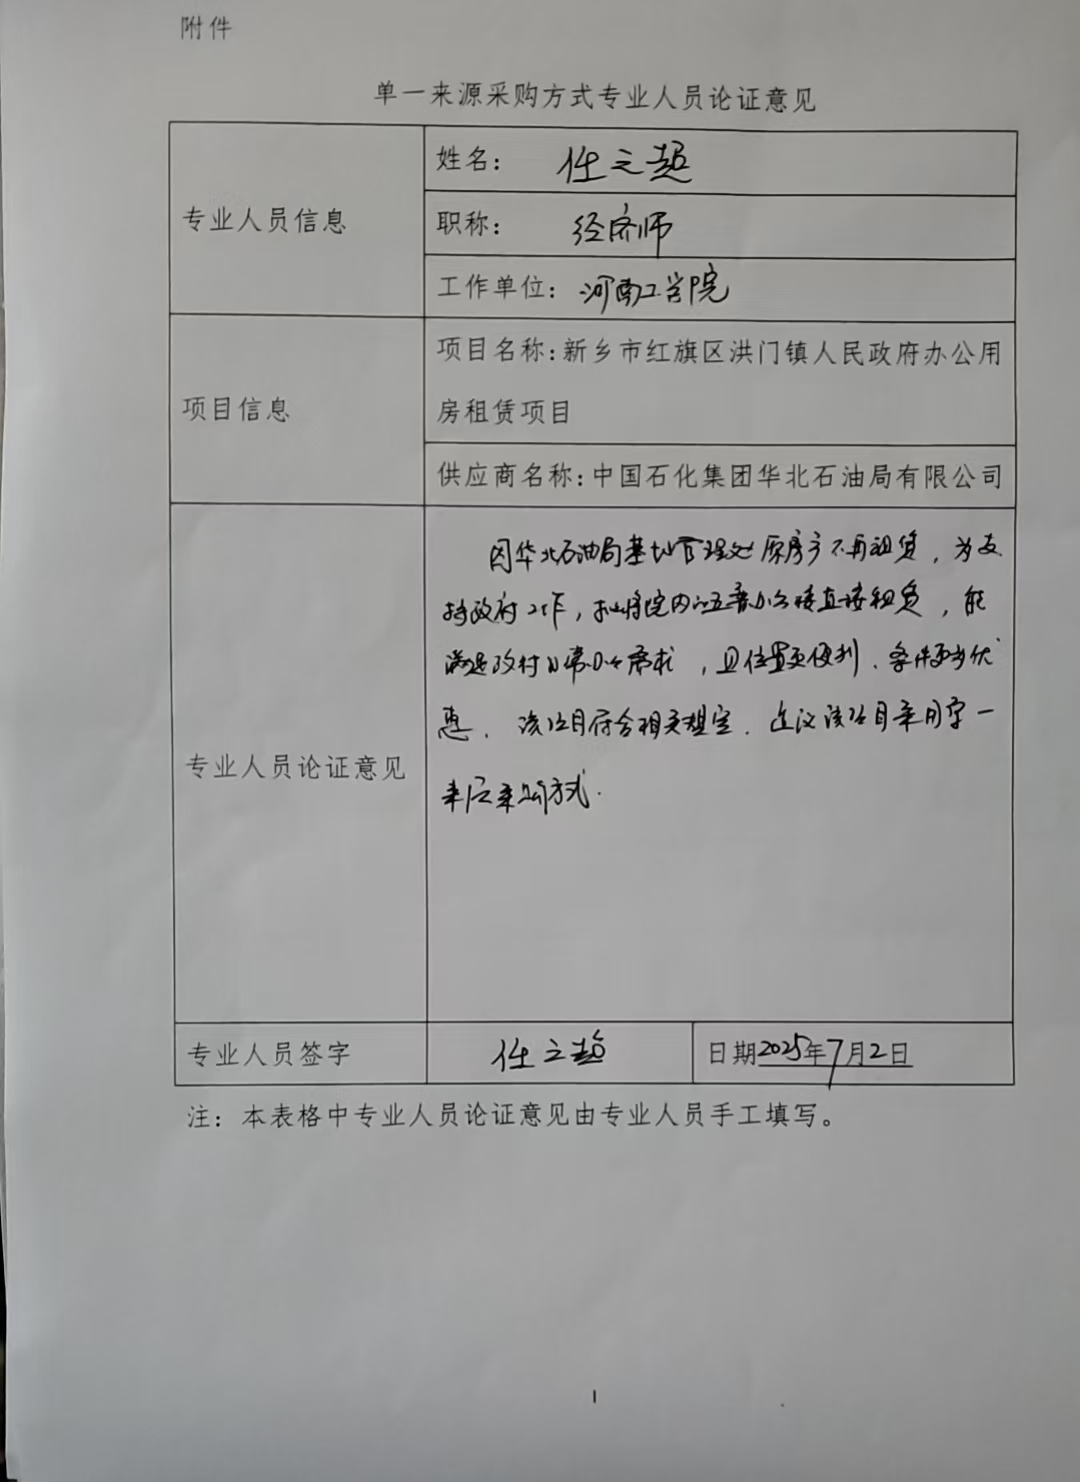 附件
单一来源采购方式专业人员论证意见
专业人员信息
姓名: 任之超
职称: 经济师
工作单位: 河南工学院
项目信息
项目名称:新乡市红旗区洪门镇人民政府办公用
房租赁项目
供应商名称:中国石化集团华北石油局有限公司
专业人员论证意见
因华北石油局基地管理处原房产不再租赁，为支
持政府工作，拟将院内的五号办公楼直接租赁，能
满足政府日常办公需求，且位置更便利、条件更为优
惠。该项目符合相关规定。建议该项目采用单一
来源采购方式.
专业人员签字
任之超
日期2025年7月2日
注: 本表格中专业人员论证意见由专业人员手工填写。
1